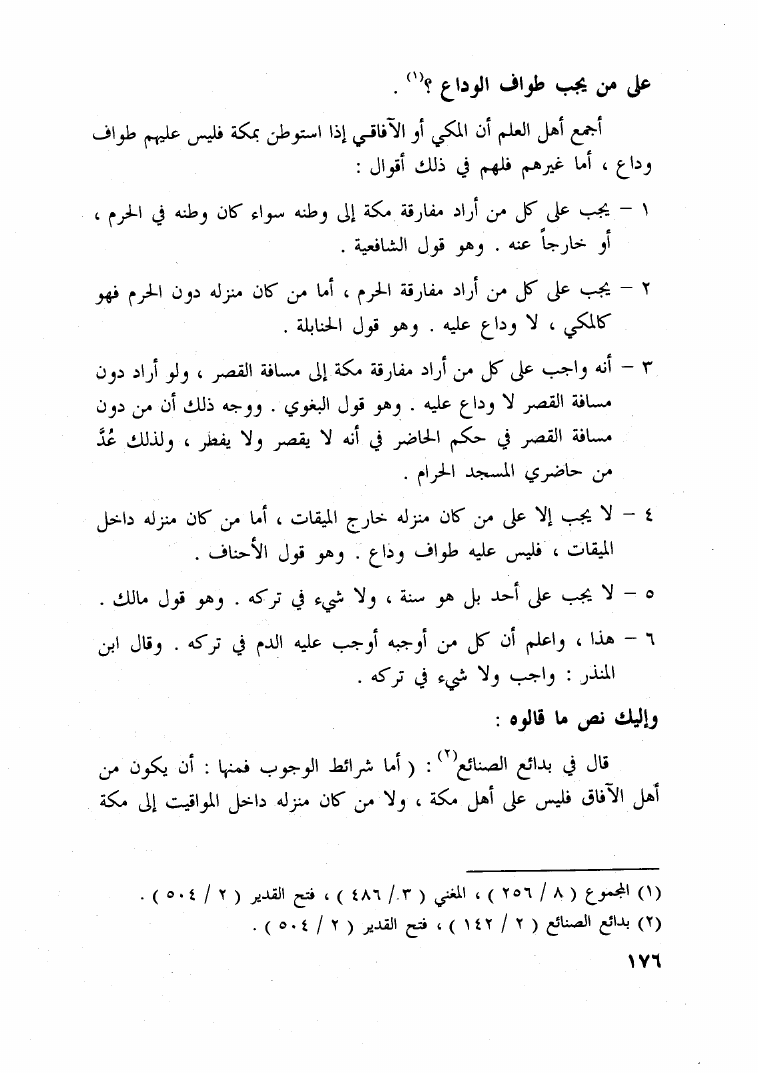 على من يجب طواف الوداع ؟(١) .
أجمع أهل العلم أن المكي أو الآفاقي إذا استوطن بمكة فليس عليهم طواف
وداع ، أما غيرهم فلهم في ذلك أقوال :
١ – يجب على كل من أراد مفارقة مكة إلى وطنه سواء كان وطنه في الحرم ،
أو خارجاً عنه . وهو قول الشافعية .
٢ – يجب على كل من أراد مفارقة الحرم ، أما من كان منزله دون الحرم فهو
كالمكي ، لا وداع عليه . وهو قول الحنابلة .
٣ – أنه واجب على كل من أراد مفارقة مكة إلى مسافة القصر ، ولو أراد دون
مسافة القصر لا وداع عليه . وهو قول البغوي . ووجه ذلك أن من دون
مسافة القصر في حكم الحاضر في أنه لا يقصر ولا يفطر ، ولذلك عُدَّ
من حاضري المسجد الحرام .
٤ – لا يجب إلا على من كان منزله خارج الميقات ، أما من كان منزله داخل
الميقات ، فليس عليه طواف وداع . وهو قول الأحناف .
٥ – لا يجب على أحد بل هو سنة ، ولا شيء في تركه . وهو قول مالك .
٦ – هذا ، واعلم أن كل من أوجبه أوجب عليه الدم في تركه . وقال ابن
المنذر : واجب ولا شيء في تركه .
وإليك نص ما قالوه :
قال في بدائع الصنائع(٢) : ( أما شرائط الوجوب فمنها : أن يكون من
أهل الآفاق فليس على أهل مكة ، ولا من كان منزله داخل المواقيت إلى مكة
(١) المجموع ( ٨ / ٢٥٦ ) ، المغني ( ٣ / ٤٨٦ ) ، فتح القدير ( ٢ / ٥٠٤ ) .
(٢) بدائع الصنائع ( ٢ / ١٤٢ ) ، فتح القدير ( ٢ / ٥٠٤ ) .
١٧٦